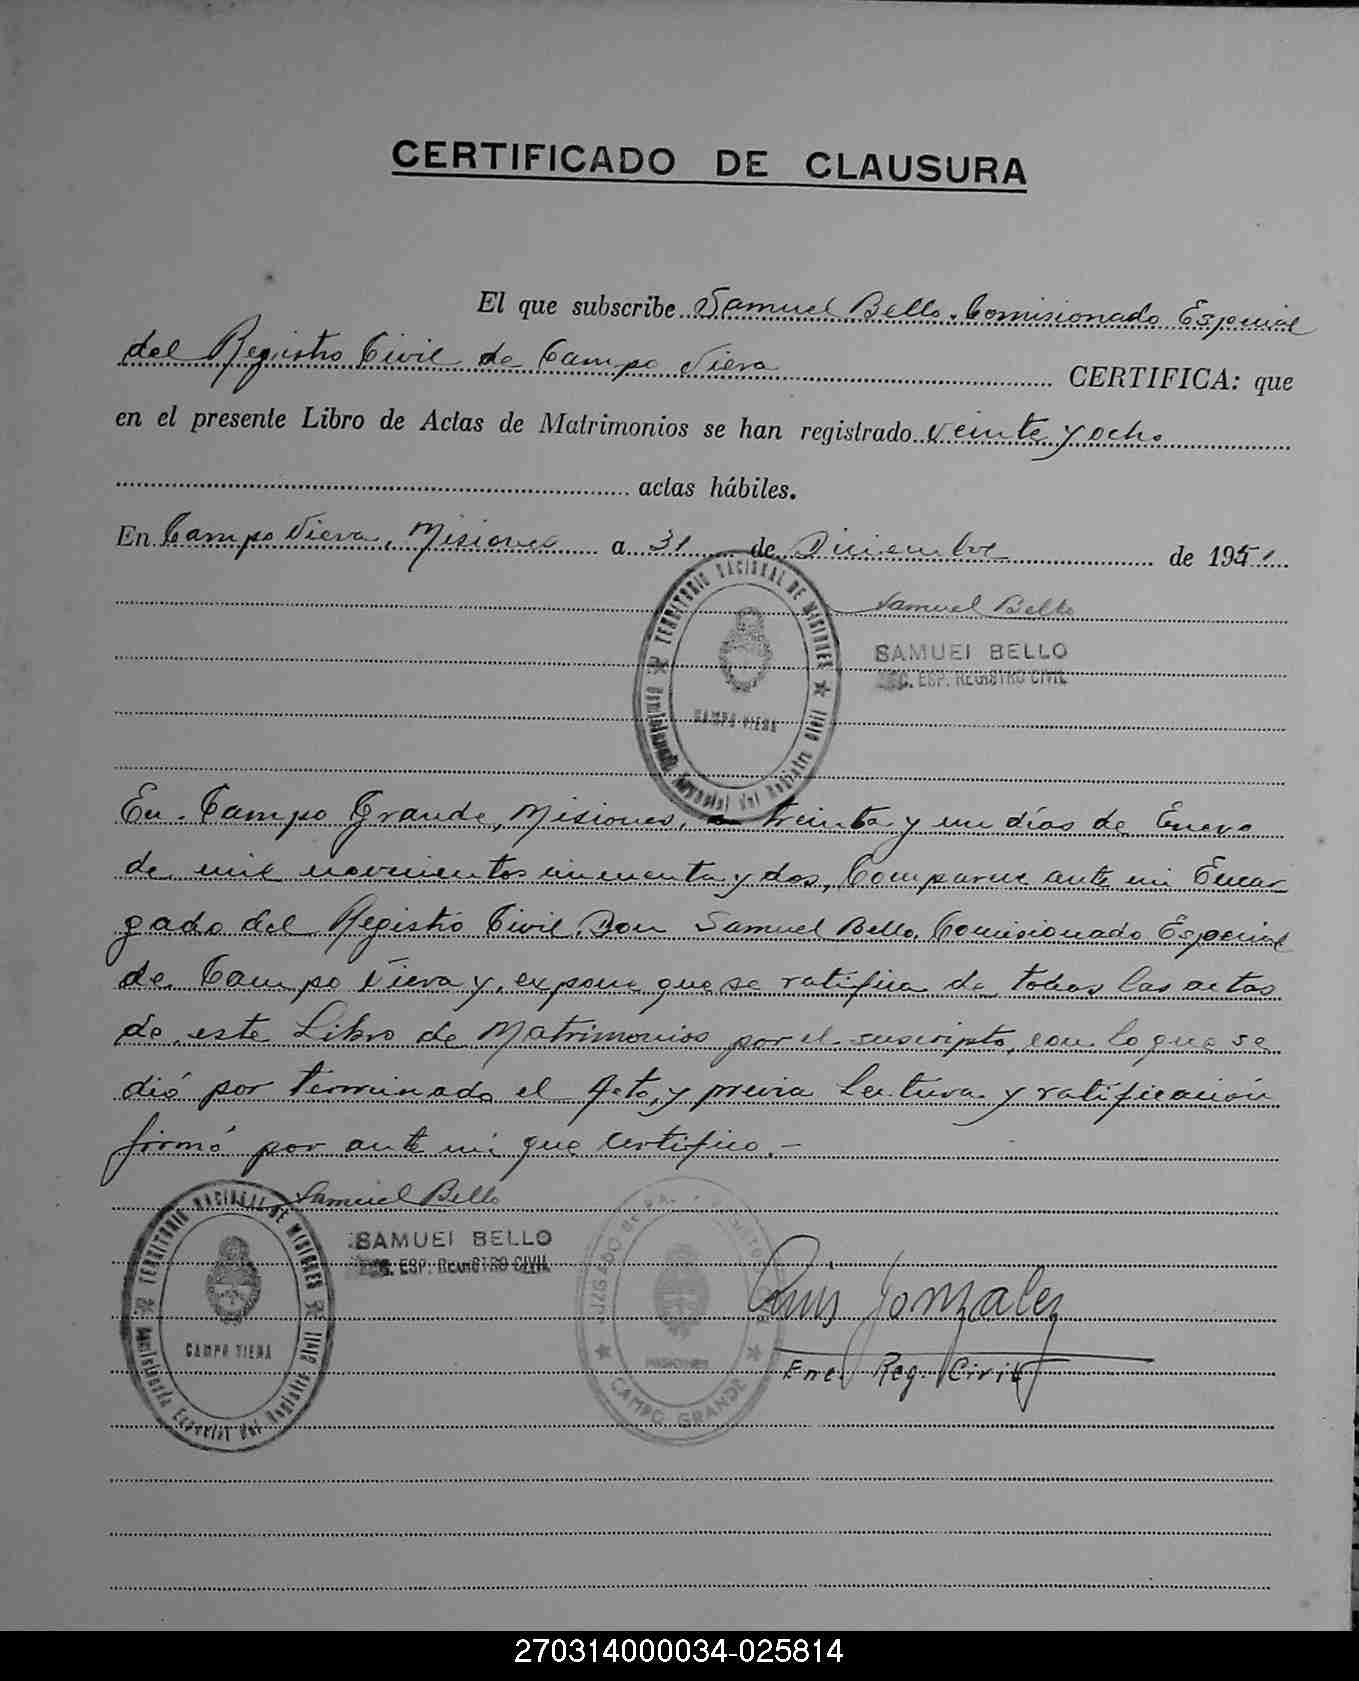 CERTIFICADO DE CLAUSURA
El que subscribe Samuel Bello. Comisionado Especial
del Registro Civil de Campo Viera CERTIFICA: que
en el presente Libro de Actas de Matrimonios se han registrado veinte y ocho
actas hábiles.
En Campo Viera, Misiones a 31 de Diciembre de 1951
Samuel Bello
SAMUEL BELLO
ESP. REGISTRO CIVIL
TERRITORIO NACIONAL DE MISIONES
Comisionado Especial del Registro Civil
CAMPO VIERA
En Campo Grande, Misiones, a treinta y un días de Enero
de mil novecientos cincuenta y dos, Comparece ante mi Encar
gado del Registro Civil, Don Samuel Bello, Comisionado Especial
de Campo Viera y, expone que se ratifica de todas las actas
de este Libro de Matrimonios por el suscripto, con lo que se
dió por terminado el Acto, y previa lectura y ratificación
firmó por ante mi que certifico.-
Samuel Bello
SAMUEL BELLO
ESP. REGISTRO CIVIL
TERRITORIO NACIONAL DE MISIONES
Comisionado Especial del Registro Civil
CAMPO VIERA
JUZGADO DE PAZ
MISIONES
CAMPO GRANDE
Luis Gonzalez
Enc. Reg. Civil
270314000034-025814